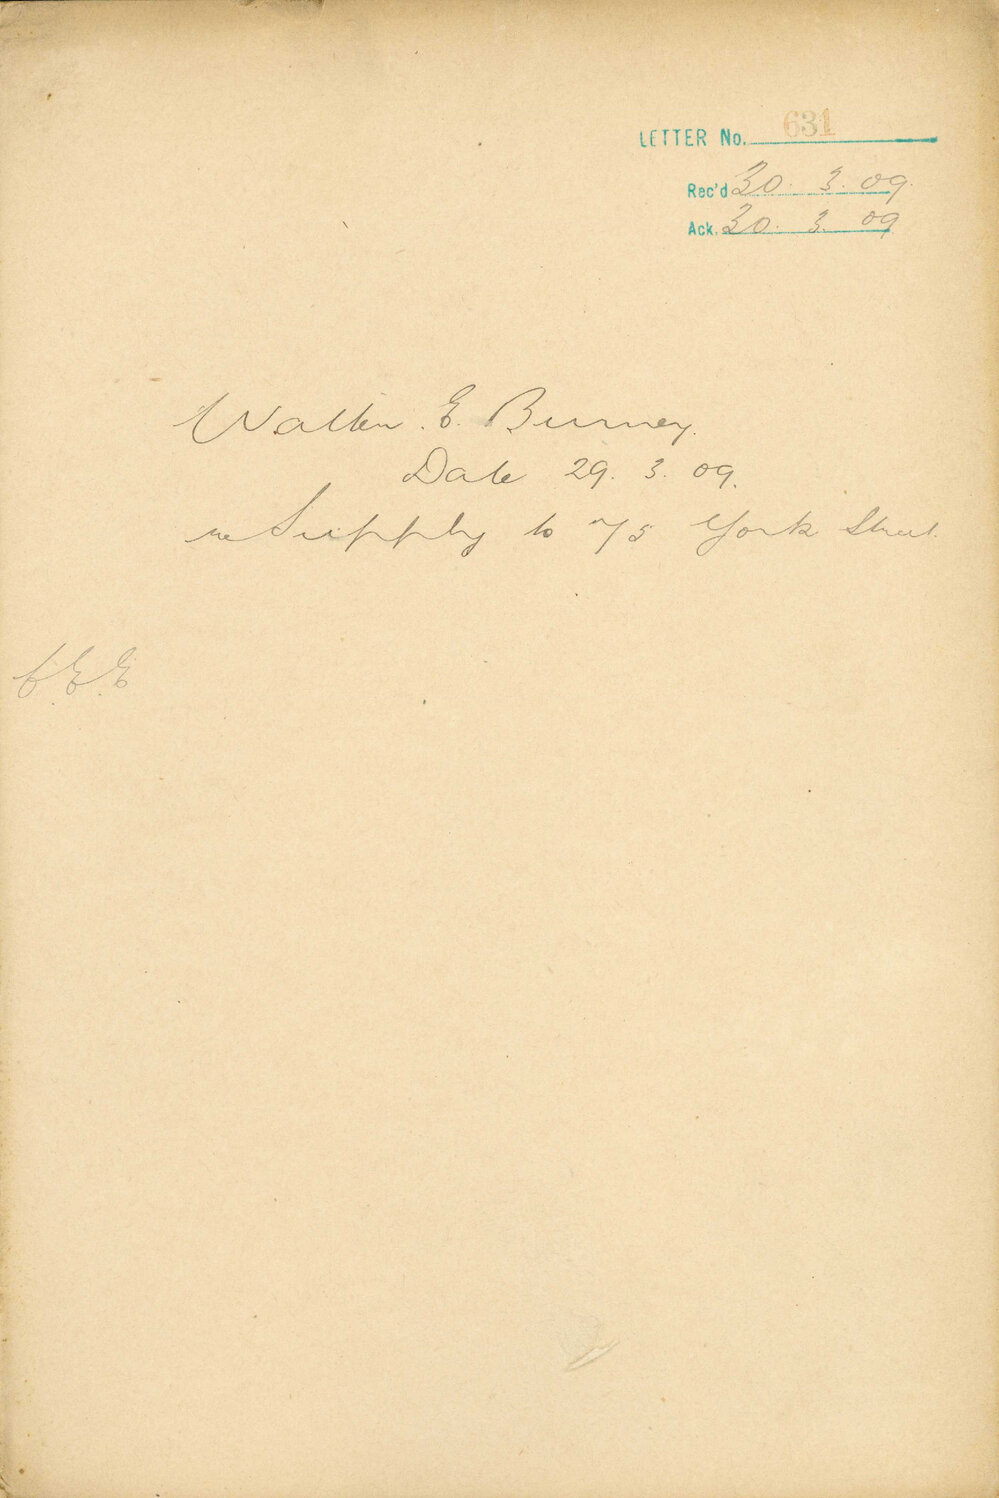 LETTER No. 631
Rec'd 30. 3. 09.
Ack. 30. 3. 09
Walter. E. Burney.
Date 29. 3. 09.
re Supply to 75 York Street.
C.E.E